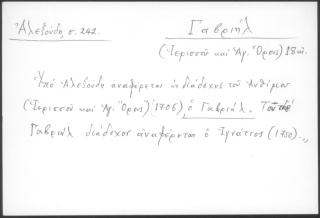 Ἀλεξούδη, σ. 242.
Γαβριήλ
(Ἱερισσοῦ καὶ Ἁγ. Ὄρους) 18 αἰ.
Ὑπὸ Ἀλεξούδη ἀναφέρεται ὡς διάδοχος τοῦ Ἀνθίμου
(Ἱερισσοῦ καὶ Ἁγ. Ὄρους) (1706) ὁ Γαβριήλ. Τοῦ δὲ
Γαβριὴλ διάδοχος ἀναφέρεται ὁ Ἰγνάτιος (1750).,,